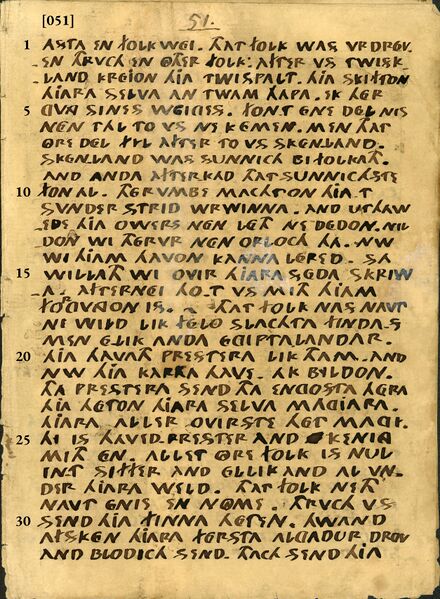 [051]
51.
1 ASTA EN FOLKWEI. THAT FOLK WAS VRDREV.
EN THRVCH EN OTHER FOLK. AFTER VS TWISK
LAND KREJON HJA TWISPALT. HJA SKIFTON
HJARA SELVA AN TWAM HAPA. EK HER
5 GVNG SINES WEIGES. FON.T ENE DEL NIS
NEN TAL TO VS NE KEMEN. MEN THAT
ORE DEL FYL AFTER TO VS SKENLAND.
SKENLAND WAS SUNNICH BIFOLKATH.
AND ANDA AFTERKAD THAT SUNNICHSTE
10 FON AL. THERVMBE MACHTON HJA.T
SUNDER STRID WRWINNA. AND UTHAW
EDE HJA OWERS NEN LETH NE DEDON. NIL
DON WI THERVR NEN ORLOCH HA. NW
WI HJAM HAVON KANNA LERED. SA
15 WILLATH WI OVIR HJARA SEDA SKRIW
A. AFTERNEI HO.T VS MITH HJAM
FORGVNGON IS. THAT FOLK NAS NAVT
NE WILD LIK FELO SLACHTA FINDA.S
MEN ELIK ANDA EGIPTALANDAR.
20 HJA HAVATH PRESTERA LIK THAM. AND
NW HJA KARKA HAVE. AK BILDON.
THA PRESTERA SEND THA ENGOSTA HERA
HJA HETON HJARA SELVA MAGJARA.
HJARA ALLER OVIRSTE HET MAGY.
25 HI IS HAVEDPRESTER AND KENING
MITH EN. ALLET ORE FOLK IS NUL
IN.T SIFFER AND ELLIK AND AL VN.
DER HJARA WELD. THAT FOLK NETH
NAVT ENIS EN NOME. THRVCH VS
30 SEND HJA FINNA HETEN. HWAND
AFSKEN HJARA FERSTA ALGADUR DROV
AND BLODICH SEND. THACH SEND HJA